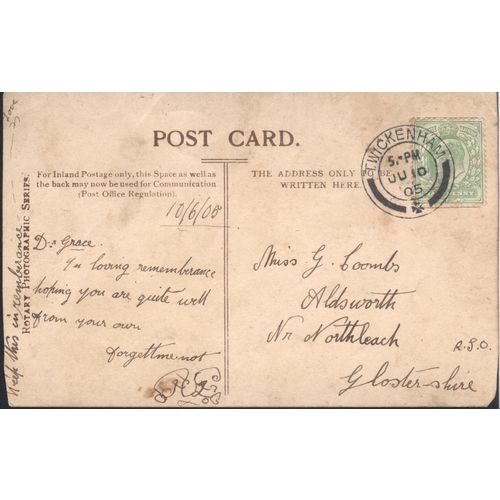 POST CARD.
For Inland Postage only, this Space as well as
the back may now be used for Communication
(Post Office Regulation).
THE ADDRESS ONLY BE
WRITTEN HERE.
TWICKENHAM
5.-PM
JU 10
05
PENNY
10/6/05
Dr Grace.
In loving rememberance
hoping you are quite well
from your own
forgettme-not
Miss G. Coombs
Aldsworth
Nr Northleach
R.S.O.
Gloster-shire
ROTARY PHOTOGRAPHIC SERIES.
Keep this in rememberance
love